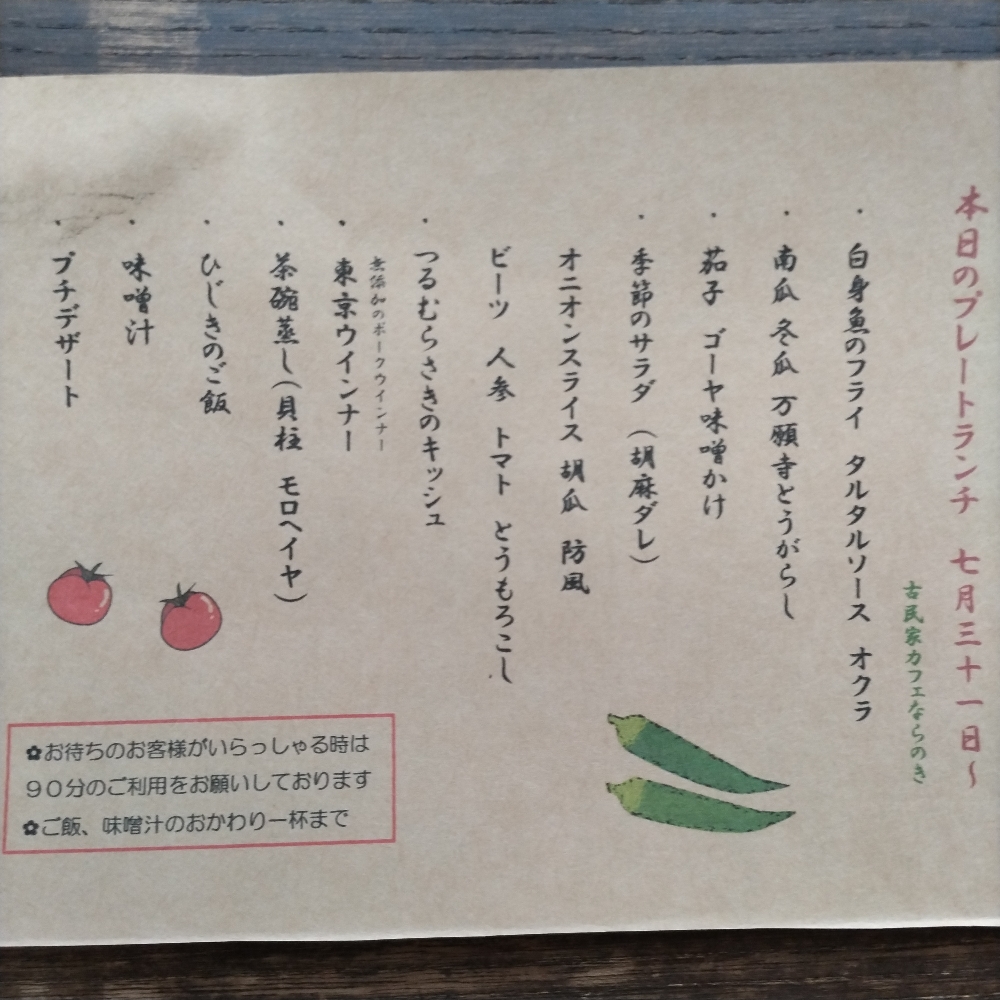 本日のプレートランチ 七月三十一日~
古民家カフェならのき
・白身魚のフライ タルタルソース オクラ
・南瓜 冬瓜 万願寺とうがらし
・茄子 ゴーヤ味噌かけ
・季節のサラダ (胡麻ダレ)
オニオンスライス 胡瓜 防風
ビーツ 人参 トマト とうもろこし
・つるむらさきのキッシュ
無添加のポークウインナー
・東京ウインナー
・茶碗蒸し(貝柱 モロヘイヤ)
・ひじきのご飯
・味噌汁
・プチデザート
✿お待ちのお客様がいらっしゃる時は
90分のご利用をお願いしております
✿ご飯、味噌汁のおかわり一杯まで